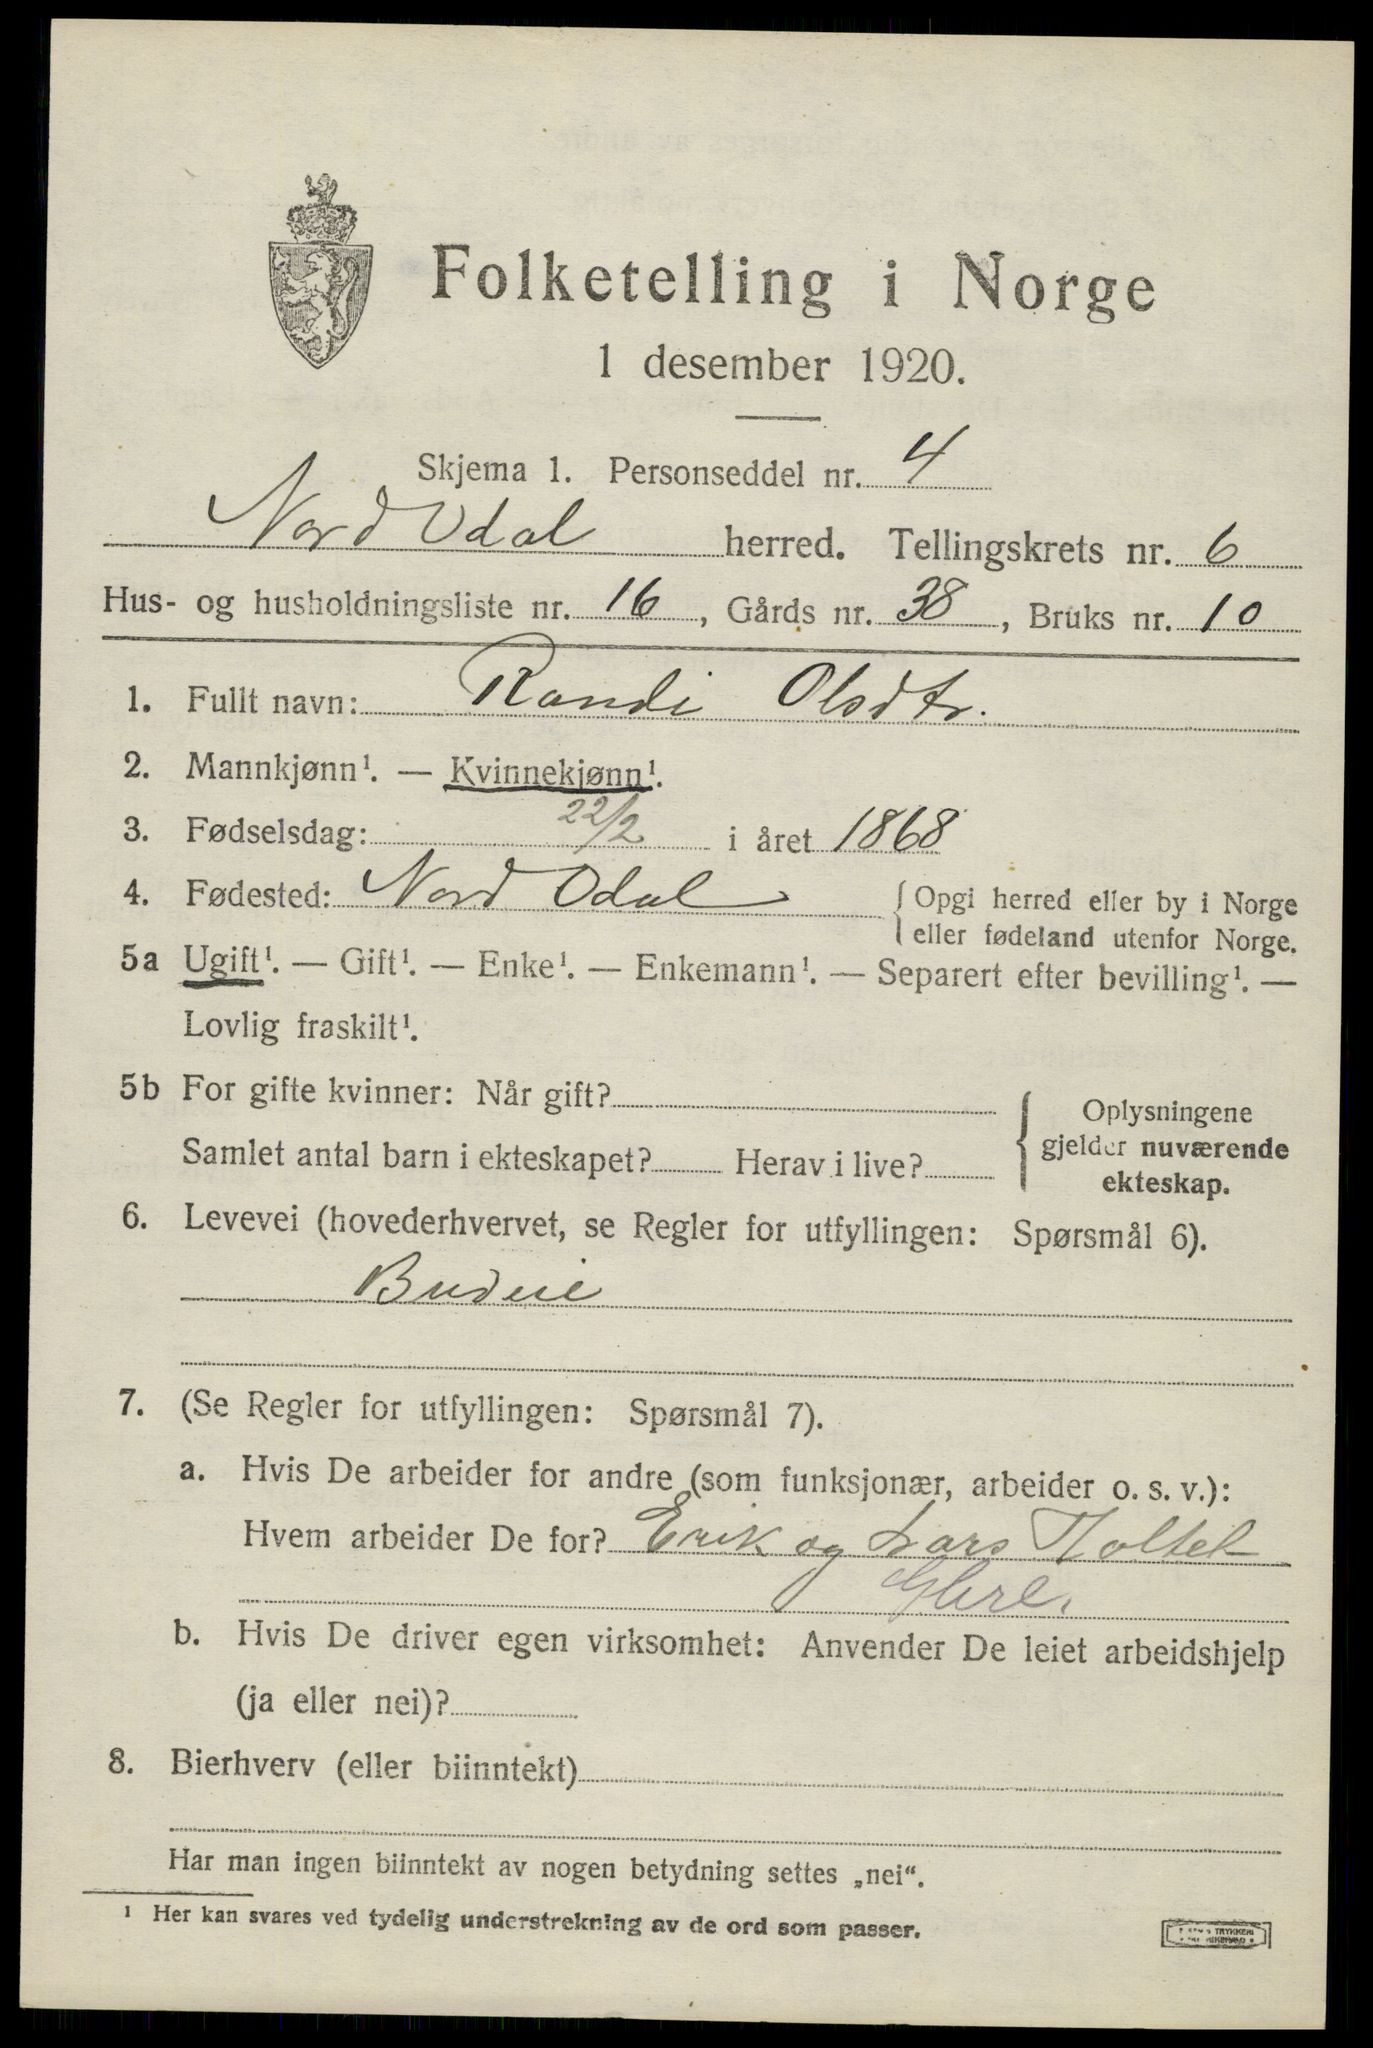 Folketelling i Norge
1 desember 1920.
Skjema 1. Personseddel nr. 4
Nord Odal herred. Tellingskrets nr. 6
Hus- og husholdningsliste nr. 16, Gårds nr. 38, Bruks nr. 10
1. Fullt navn: Randi Olsdtr.
2. Mannkjønn¹. — Kvinnekjønn¹.
3. Fødselsdag: 22/2 i året 1868
4. Fødested: Nord Odal { Opgi herred eller by i Norge
eller fødeland utenfor Norge.
5a Ugift¹. — Gift¹. — Enke¹. — Enkemann¹. — Separert efter bevilling¹. —
Lovlig fraskilt¹.
5b For gifte kvinner: Når gift?
Samlet antal barn i ekteskapet? Herav i live?
{ Oplysningene
gjelder nuværende
ekteskap.
6. Levevei (hovederhvervet, se Regler for utfyllingen: Spørsmål 6).
Budeie
7. (Se Regler for utfyllingen: Spørsmål 7).
a. Hvis De arbeider for andre (som funksjonær, arbeider o. s. v.):
Hvem arbeider De for? Erik og Lars Holtet
b. Hvis De driver egen virksomhet: Anvender De leiet arbeidshjelp
(ja eller nei)?
8. Bierhverv (eller biinntekt)
Har man ingen biinntekt av nogen betydning settes „nei“.
¹ Her kan svares ved tydelig understrekning av de ord som passer.